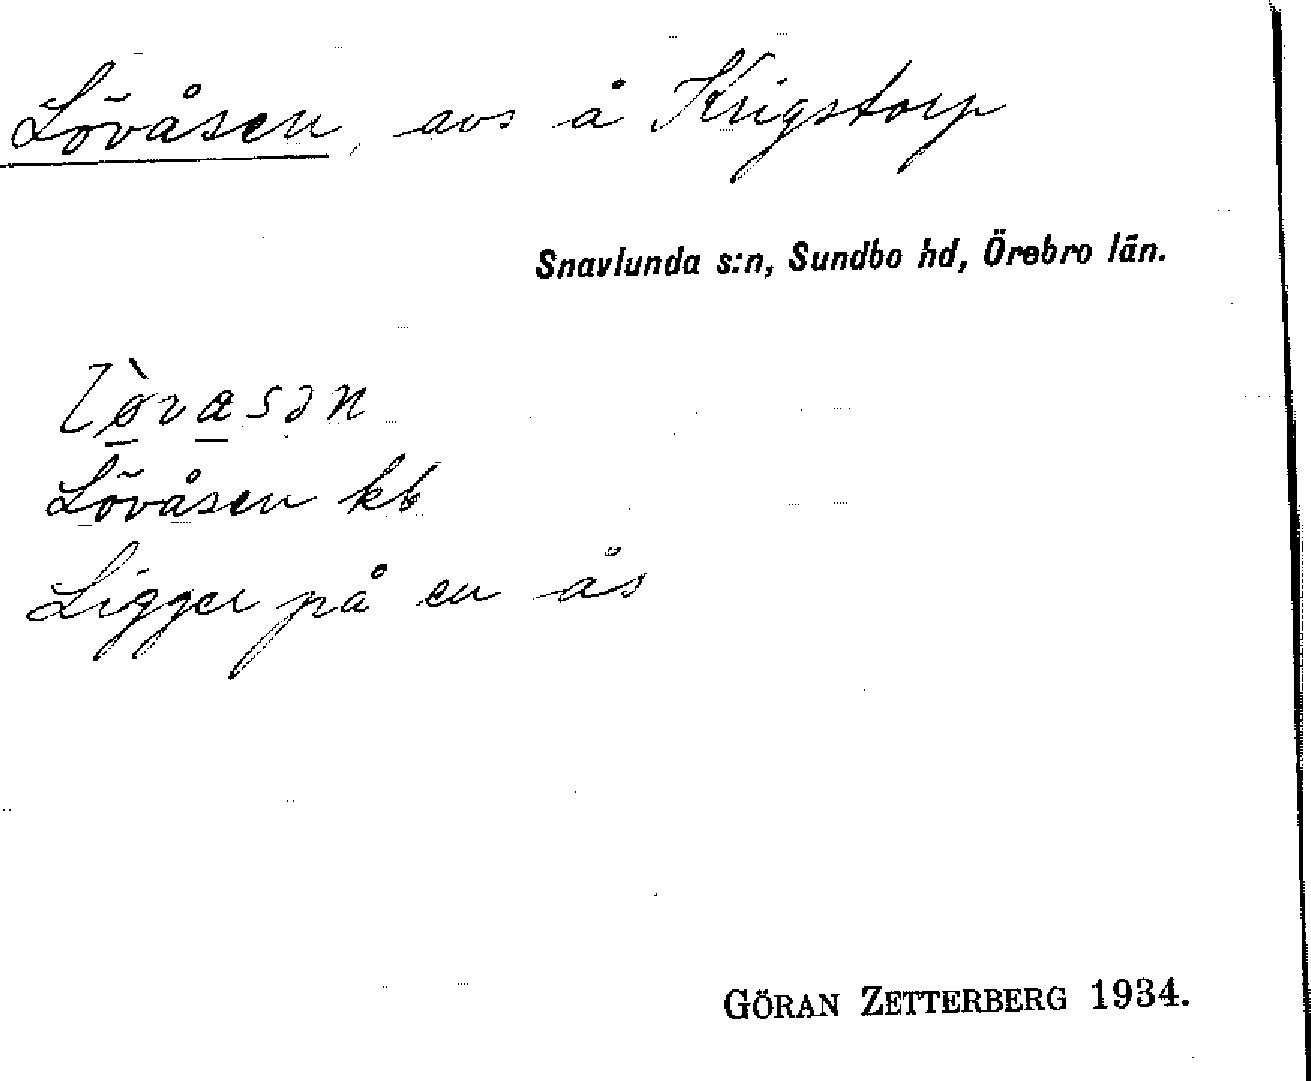 Lövåsen, avs å Krigstorp
Snavlunda s:n, Sundbo hd, Örebro län.
Lövåsen kb
Ligger på en ås
GÖRAN ZETTERBERG 1934.